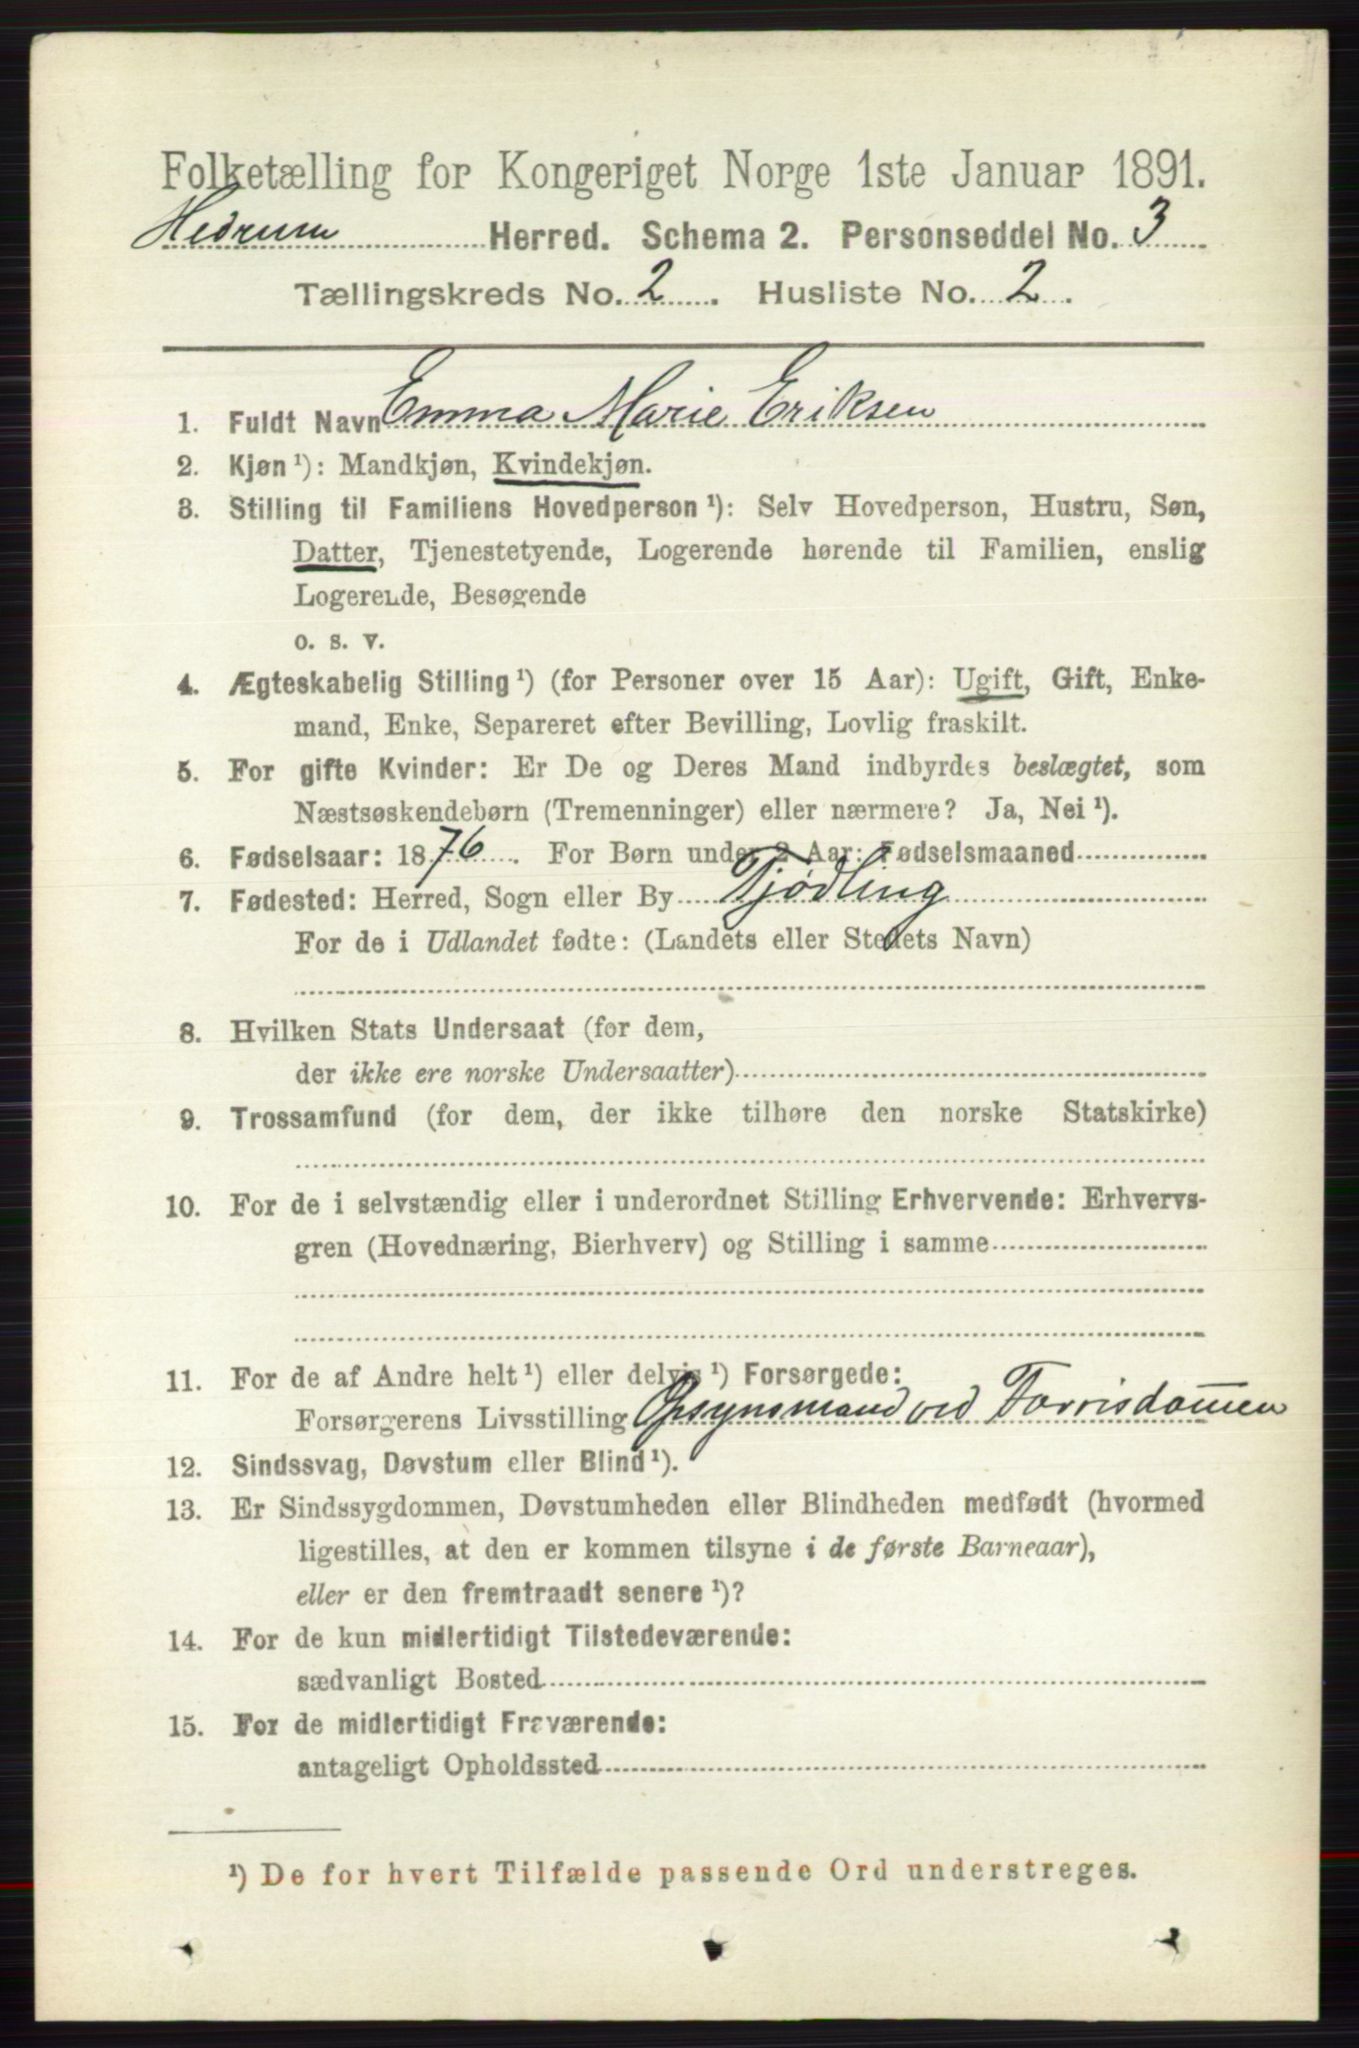 Folketælling for Kongeriget Norge 1ste Januar 1891.
Hedrum Herred. Schema 2. Personseddel No. 3
Tællingskreds No. 2. Husliste No. 2.
1. Fuldt Navn Emma Marie Eriksen
2. Kjøn ¹): Mandkjøn, Kvindekjøn.
3. Stilling til Familiens Hovedperson ¹): Selv Hovedperson, Hustru, Søn,
Datter, Tjenestetyende, Logerende hørende til Familien, enslig
Logerende, Besøgende
o. s. v.
4. Ægteskabelig Stilling ¹) (for Personer over 15 Aar): Ugift, Gift, Enke-
mand, Enke, Separeret efter Bevilling, Lovlig fraskilt.
5. For gifte Kvinder: Er De og Deres Mand indbyrdes beslægtet, som
Næstsøskendebørn (Tremenninger) eller nærmere? Ja, Nei ¹).
6. Fødselsaar: 1876. For Børn under 2 Aar: Fødselsmaaned
7. Fødested: Herred, Sogn eller By Tjødling
For de i Udlandet fødte: (Landets eller Stedets Navn)
8. Hvilken Stats Undersaat (for dem,
der ikke ere norske Undersaatter)
9. Trossamfund (for dem, der ikke tilhøre den norske Statskirke)
10. For de i selvstændig eller i underordnet Stilling Erhvervende: Erhvervs-
gren (Hovednæring, Bierhverv) og Stilling i samme
11. For de af Andre helt ¹) eller delvis ¹) Forsørgede:
Forsørgerens Livsstilling Opsynsmand ved Farrisdam̅en
12. Sindssvag, Døvstum eller Blind ¹).
13. Er Sindssygdommen, Døvstumheden eller Blindheden medfødt (hvormed
ligestilles, at den er kommen tilsyne i de første Barneaar),
eller er den fremtraadt senere ¹)?
14. For de kun midlertidigt Tilstedeværende:
sædvanligt Bosted
15. For de midlertidigt Fraværende:
antageligt Opholdssted
¹) De for hvert Tilfælde passende Ord understreges.